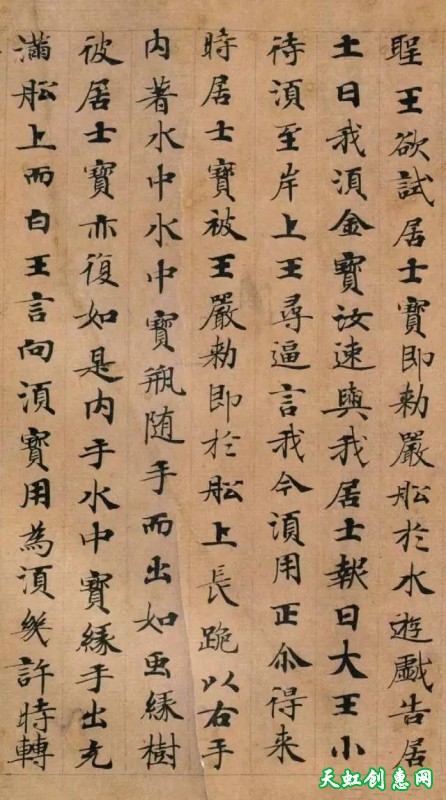 聖王欲試居士寶即勅嚴舩於水遊戲告居
士曰我湏金寶汝速與我居士報曰大王小
待湏至岸上王尋逼言我今湏用正尒得来
時居士寶被王嚴勅即於舩上長跪以右手
内著水中水中寶瓶随手而出如虫緣樹
彼居士寶亦復如是内手水中寶緣手出充
滿舩上而白王言向湏寶用為湏幾許時轉
天虹创惠网